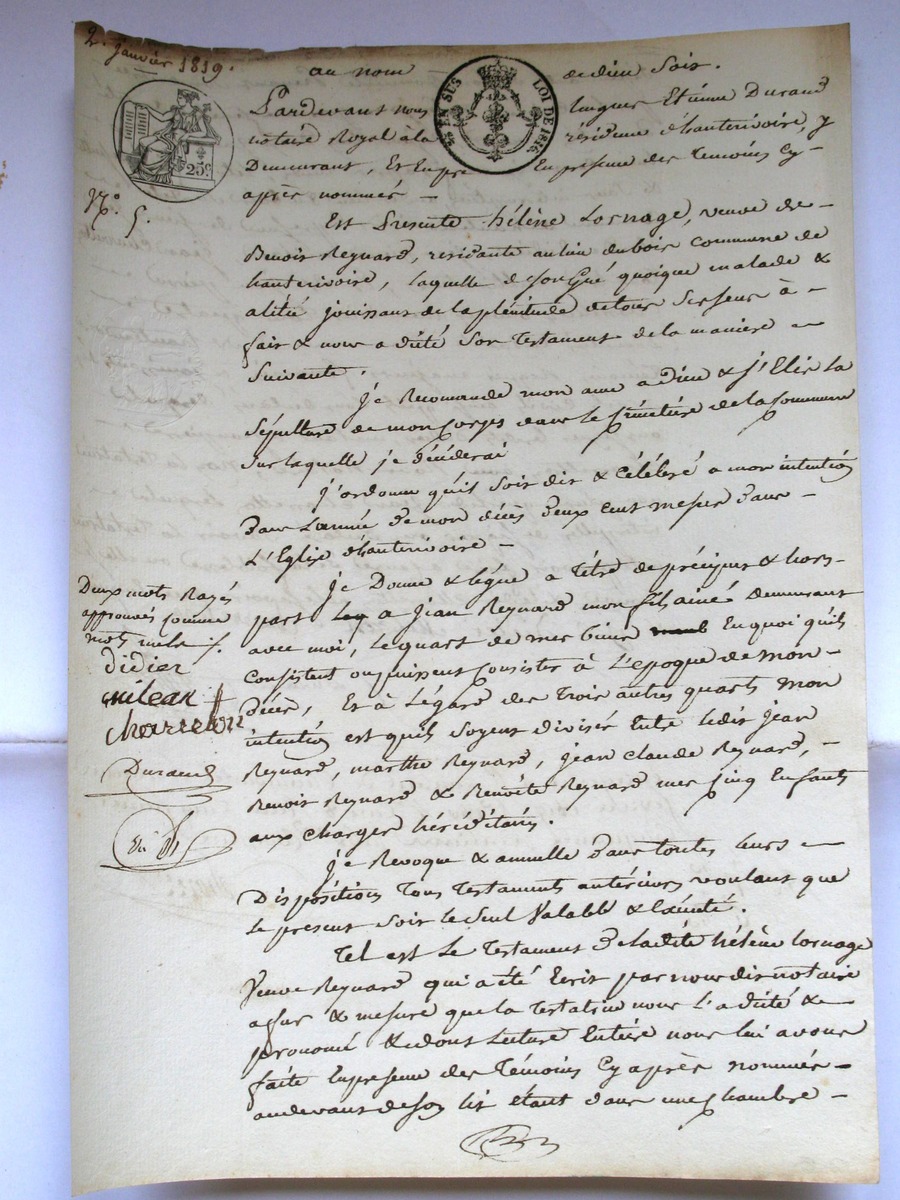 2. Janvier 1819.
au nom de dieu Soit.
EN SUS LOI DE 1816
25c
N.° 5.
Pardevant nous hugues Etienne Durand
notaire Royal à la résidence d'hauterivoire, y
Demeurant, Et En présence des Témoins Cy-
après nommés -
Est Presente hélène Lornage, veuve de
Benoit Reynard, residante au lieu du bois Commune de
hauterivoire, laquelle de Son Gré quoique malade &
alitée jouissant de la plénitude de tous Ses Sens à
fait & nous a dicté Son Testament de la manière
Suivante.
Je Recomande mon ame a Dieu & j'Elis la
Sépulture de mon Corps dans le Cimetière de la Commune
Sur laquelle je décéderai
J'ordonne qu'il Soit dit & Célébré a mon intention
Dans L'année De mon décès Deux Cent messes Dans
L'Eglise d'hauterivoire -
Je Donne & lègue a Titre de préciput & hors
part a Jean Reynard mon fils ainé Demeurant
avec moi, Le quart de mes biens En quoi qu'ils
Consistent ou puissent Consister à L'époque de mon
Décès, Et à L'égard des Trois autres quarts mon
intention est qu'ils Soyent divisés Entre ledit Jean
Reynard, marthe Reynard, Jean Claude Reynard,
Benoit Reynard & Benoite Reynard mes Cinq Enfants
aux Charges héréditaires.
Je Revoque & annulle Dans toutes leurs
Dispositions Tous Testaments antérieurs voulant que
le present Soit le Seul Valable &
Tel est Le Testament De ladite hélène Lornage
Veuve Reynard qui a été Ecrit par nous dit notaire
a fur & mesure que la Testatrice nous L'a dicté &
prononcé & dont Lecture Entière nous lui avons
faite En presence des Témoins Cy après nommés
au devant de Son lit étant dans une Chambre -
Deux mots Rayés
approuvés Comme
mots nuls /.
didier
Charreton
Durand